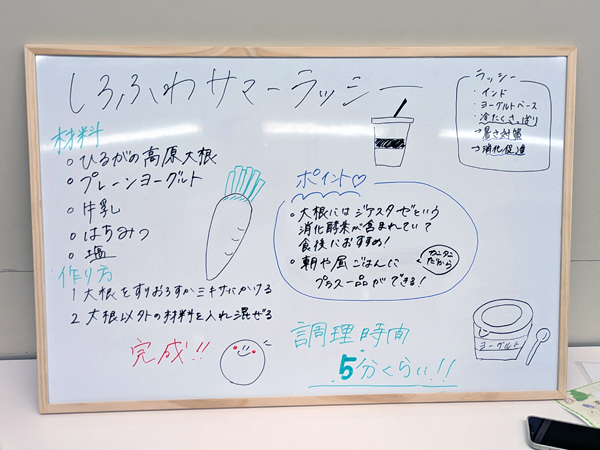 しろふわサマーラッシー
ラッシー
・インド
・ヨーグルトベース
・冷たくさっぱり
→暑さ対策
→消化促進
材料
○ひるがの高原大根
○プレーンヨーグルト
○牛乳
○はちみつ
○塩
作り方
1 大根をすりおろすかミキサーにかける
2 大根以外の材料を入れ混ぜる
完成!!
ポイント♡
○大根にはジアスターゼという
消化酵素が含まれていて
食後におすすめ!
○朝や昼ごはんに
プラス一品ができる!
カンタン
だから
調理時間
5分くらい!!
ヨーグルト